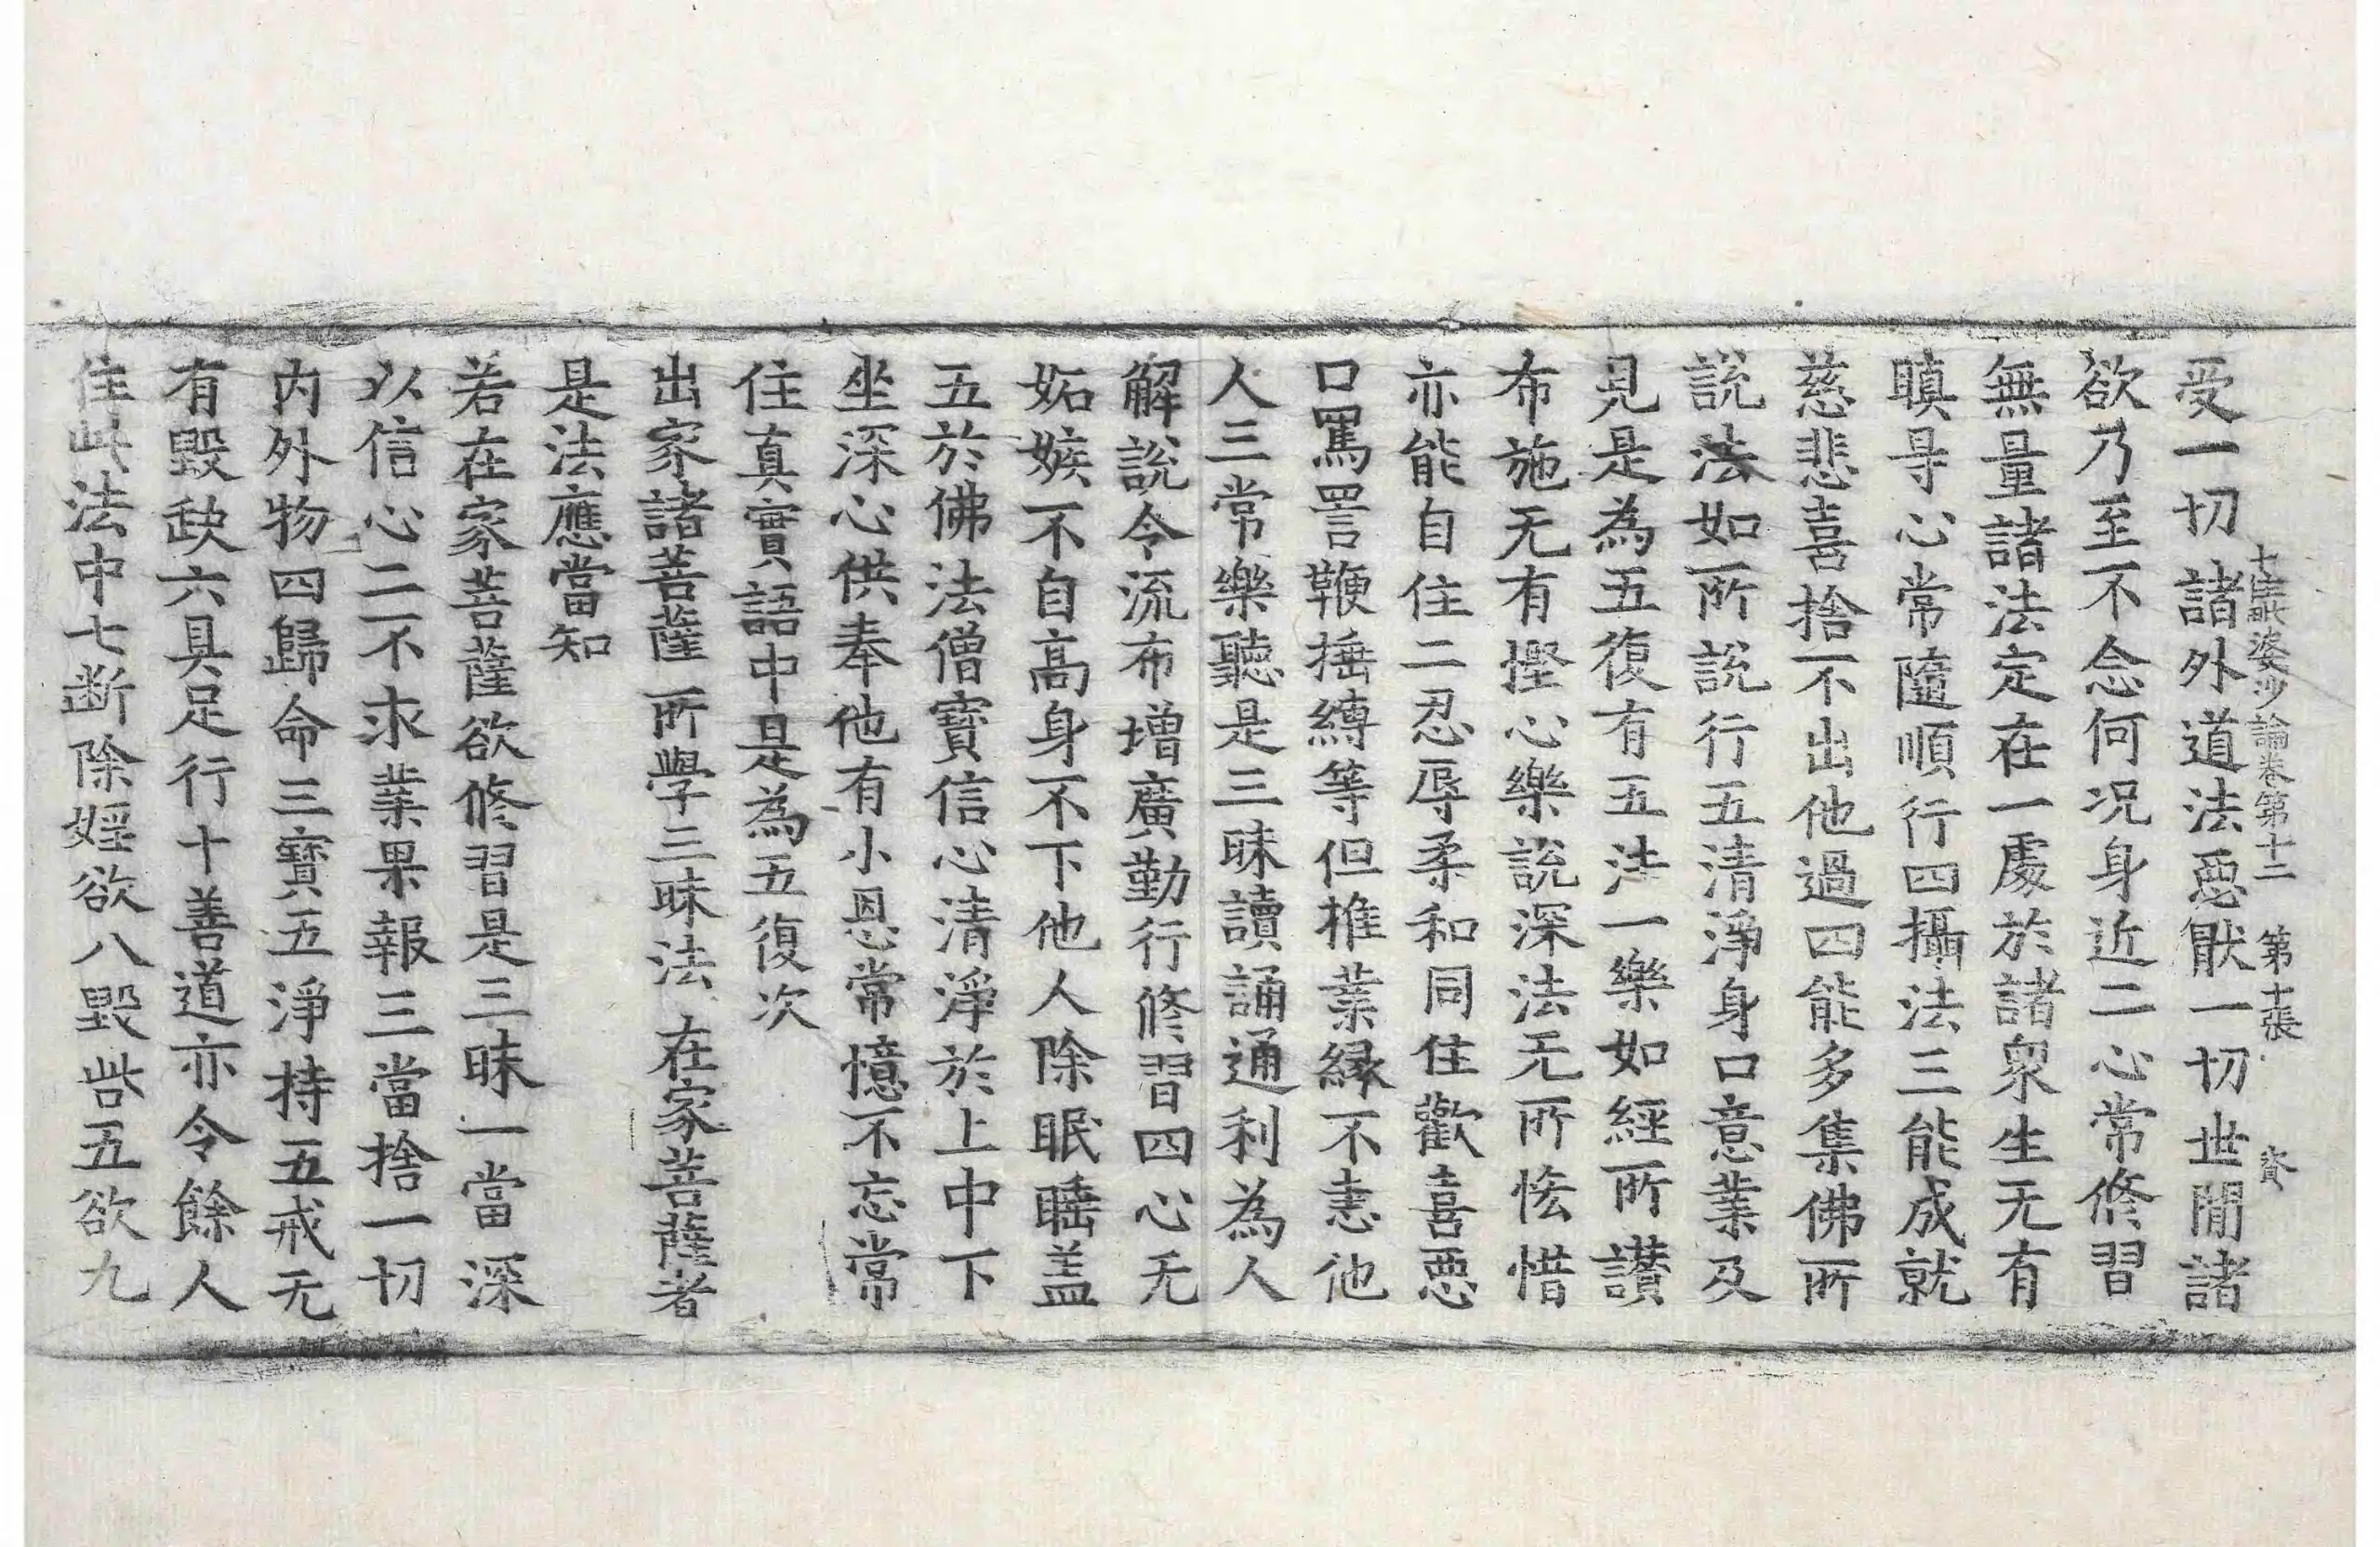 十住毗婆沙論卷第十二　第十張　資
受一切諸外道法惡猒一切世閒諸
欲乃至不念何况身近二心常修習
無量諸法定在一處於諸衆生无有
瞋㝵心常隨順行四攝法三能成就
慈悲喜捨不出他過四能多集佛所
說法如所說行五清淨身口意業及
見是為五復有五法一樂如經所讃
布施无有慳心樂說深法无所悋惜
亦能自住二忍辱柔和同住歡喜惡
口罵詈鞭捶縛等但推業緣不恚他
人三常樂聽是三昧讀誦通利為人
解說令流布增廣勤行修習四心无
妬嫉不自高身不下他人除眠睡盖
五於佛法僧寶信心清淨於上中下
坐深心供奉他有小恩常憶不忘常
住真實語中是為五復次
出家諸菩薩　所學三昧法　在家菩薩者
是法應當知
若在家菩薩欲修習是三昧一當深
以信心二不求業果報三當捨一切
內外物四歸命三寶五淨持五戒无
有毀缺六具足行十善道亦令餘人
住此法中七断除婬欲八毀呰五欲九